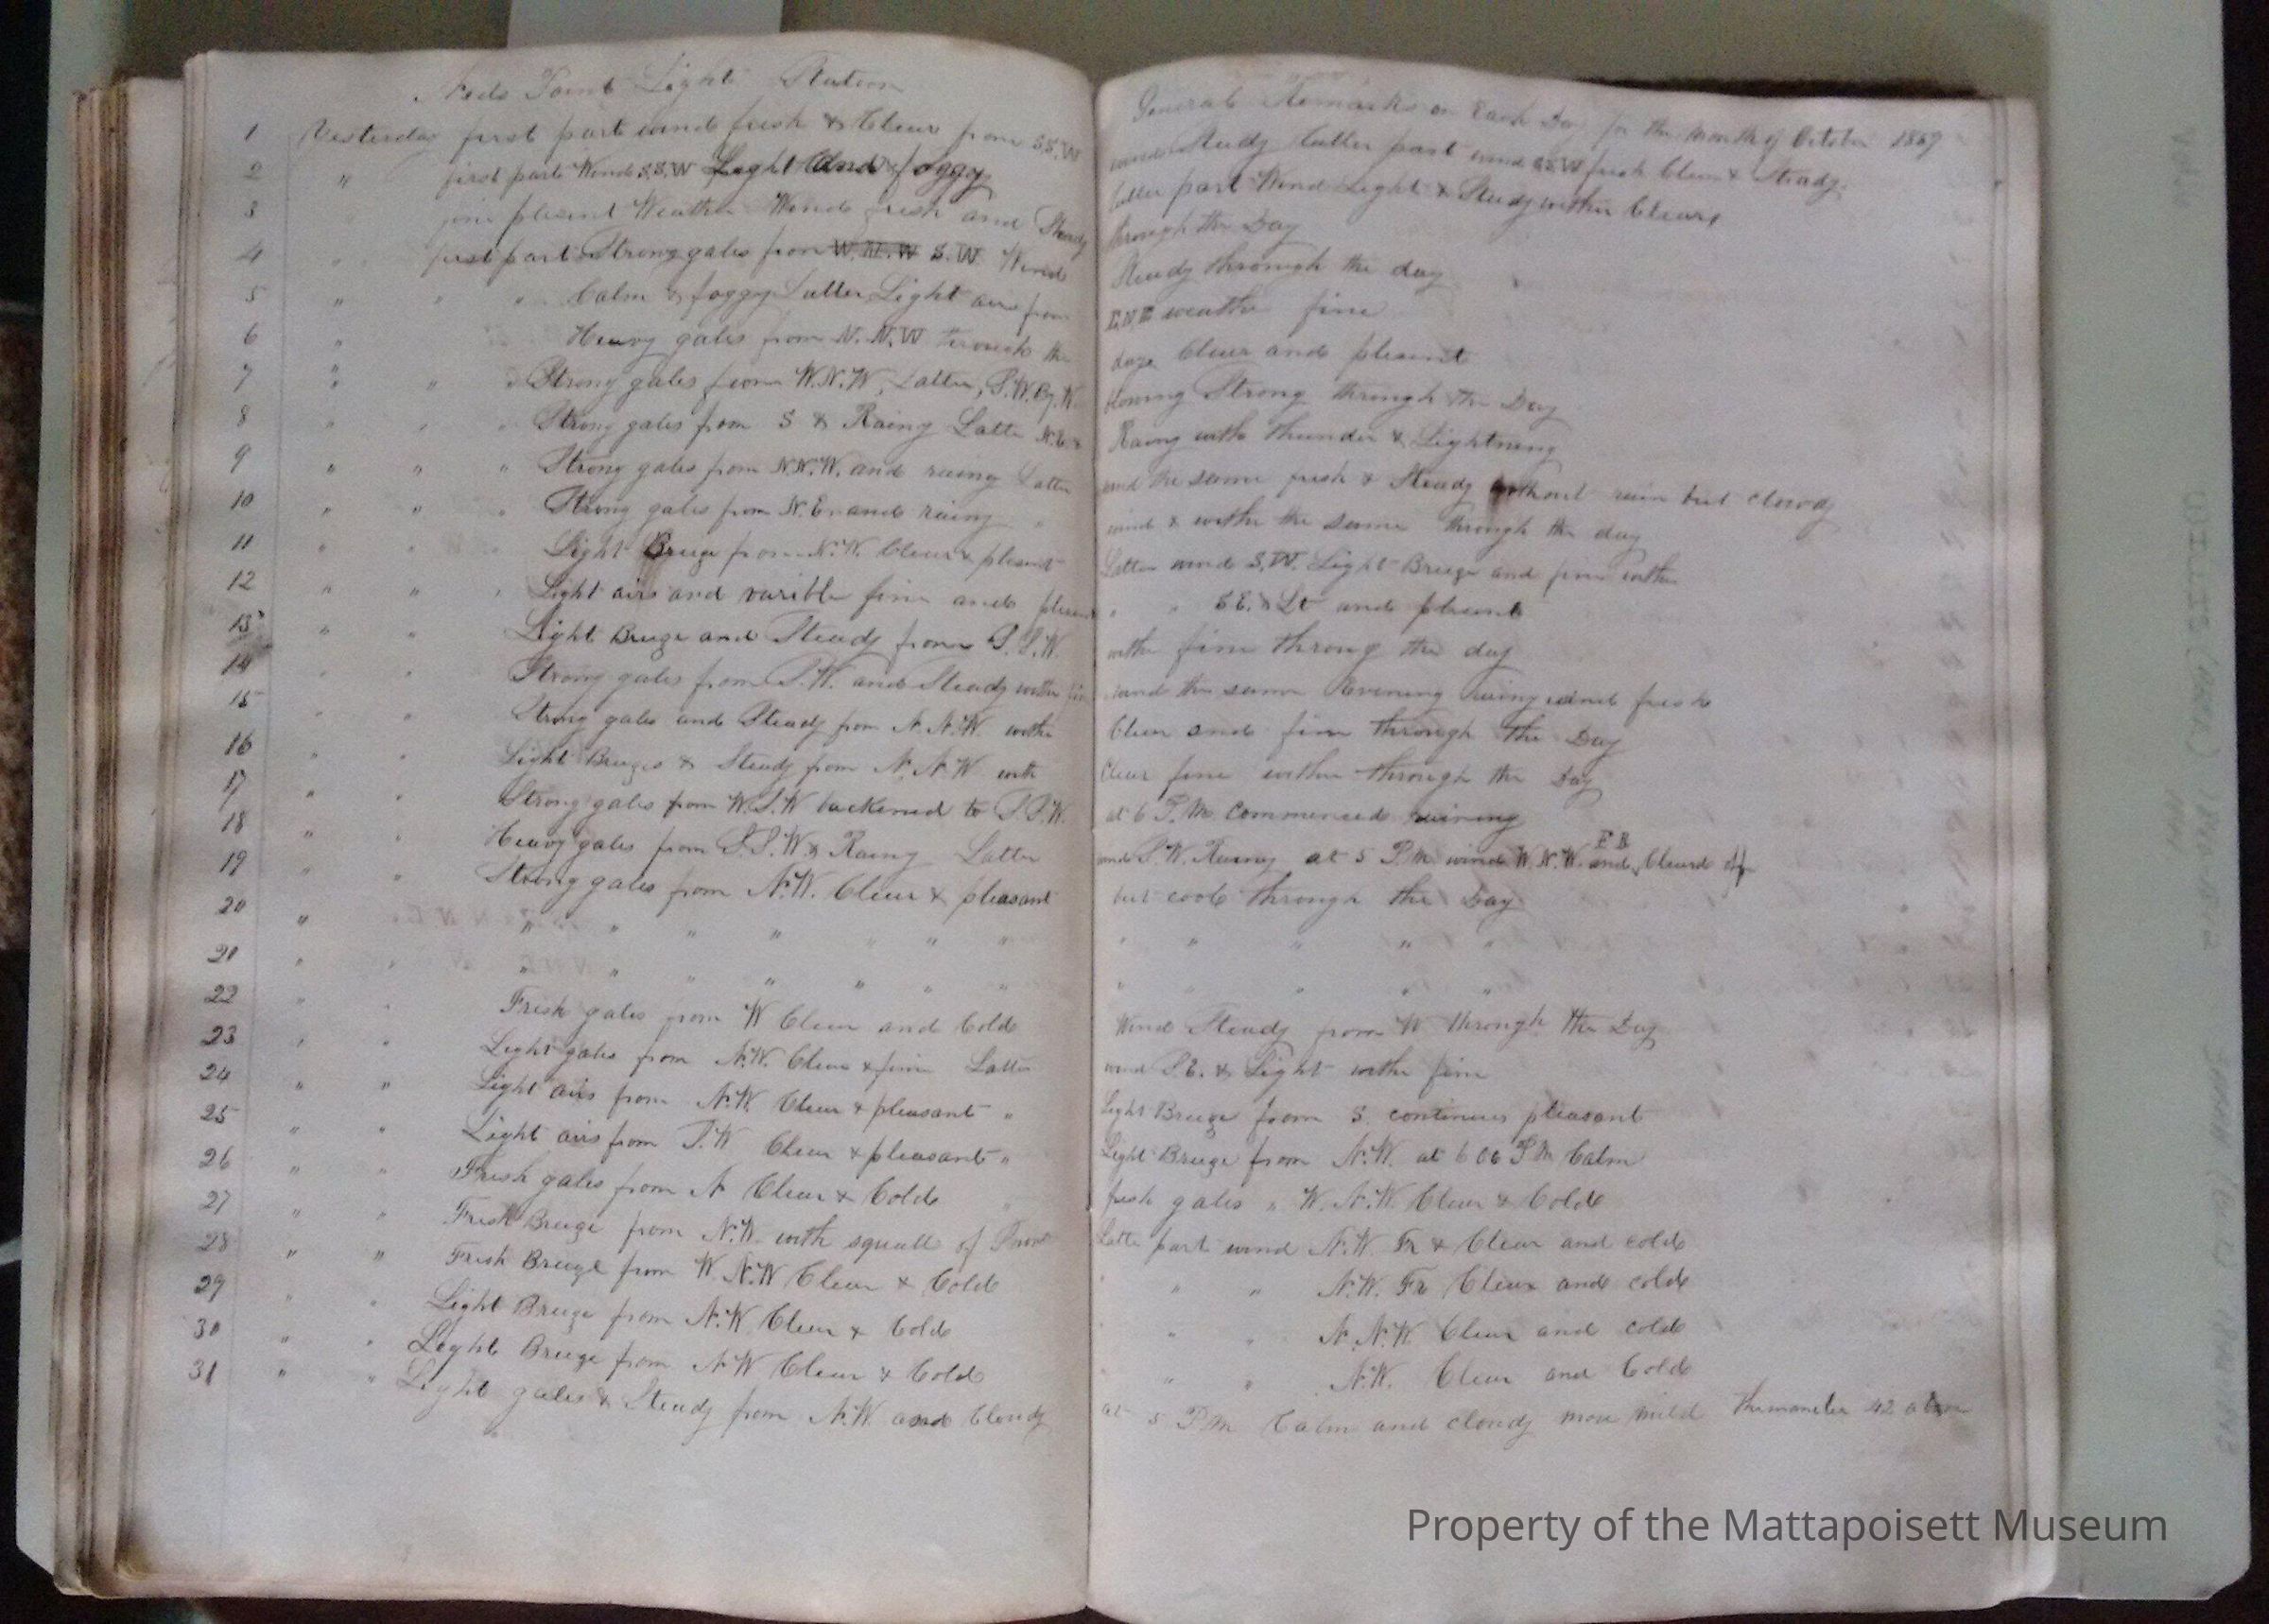 Neds Point Light Station
1 Yesterday first part wind fresh & Clear from S.S.W
2 " first part Wind S.S.W Light And foggy
3 " fine plesent Weather Wind fresh and Steady
4 " " first part Strong gales from W.N.W S.W. Wind
5 " " " Calm & foggy Latter Light airs from
6 " Heavy gales from N.N.W through the
7 " " " Strong gales from W.N.W, Latter, S.W. By. W.
8 " " " Strong gales from S & Rainy Latter N.E &
9 " " " Strong gales from N.N.W. and raing Latter
10 " " " Strong gales from N.E. and rainy "
11 " " " Light Breize from N.W. Clear & plesent
12 " " " Light airs and varible fine and plesent
13 " " Light Breize and Steady from S.S.W.
14 " " Strong gales from S.W. and Steady wether fine
15 " " Strong gales and Steady from N.N.W. wethe
16 " " Light Breizes & Steady from N.N.W. with
17 " " Strong gales from W.S.W backened to S.S.W.
18 " " Heavy gales from S.S.W. & Rainy Latter
19 " " Strong gales from N.W. Clear & pleasant
20 " " " " " " " "
21 " " " " " " " " "
22 " " Fresh gales from W Clear and Cold
23 " " Light gales from N.W. Clear & fine Latter
24 " " Light airs from N.W. Clear & pleasant "
25 " " Light airs from S.W Clear & pleasant "
26 " " Fresh gales from N Clear & Cold "
27 " " Fresh Breize from N.W. with squall of
28 " " Fresh Breize from W.N.W Clear & Cold
29 " " Light Breize from N.W. Clear & Cold
30 " " Light Breize from N.W Clear & Cold
31 " " Light gales & Steady from N.W. and Cloudy
General Remarks on Each Day for the month of October 1859
wind Steady latter part wind S.S.W fresh Clear & Steady
latter part Wind Light & Steady wether Clears
through the Day
Steady through the day
E.N.E weather fine
daye Clear and plesent
blowing Strong through the Day
Raing with thunder & Lightning
and the same fresh & Steady without rain but clowdy
wind & wether the same through the day
Latter wind S.W. Light Breize and fine wether
" " S.E. & Lt and plesent
wether fine throug the day
wind the same Evening wind fresh
Clear and fine through the Day
Clear fine wether through the Day
at 6 P.M. Commenced raining
and S.W. Rainy at 5 P.M. wind W.N.W. and F B Cleard off
but cool through the Day
" " " " "
" " " " "
Wind Steady from W through the Day
wind S.E. & Light wethe fine
Light Breize from S. continues pleasant
Light Breize from N.W. at 6 P M Calm
fresh gales " W.N.W. Clear & Cold
Latte part wind N.W. Fr & Clear and cold
" " " N.W. Fr Clear and cold
" " " N.N.W Clear and cold
" " " N.W. Clear and Cold
at 5 P M Calm and cloudy more mild thermaneter 42 above
Property of the Mattapoisett Museum